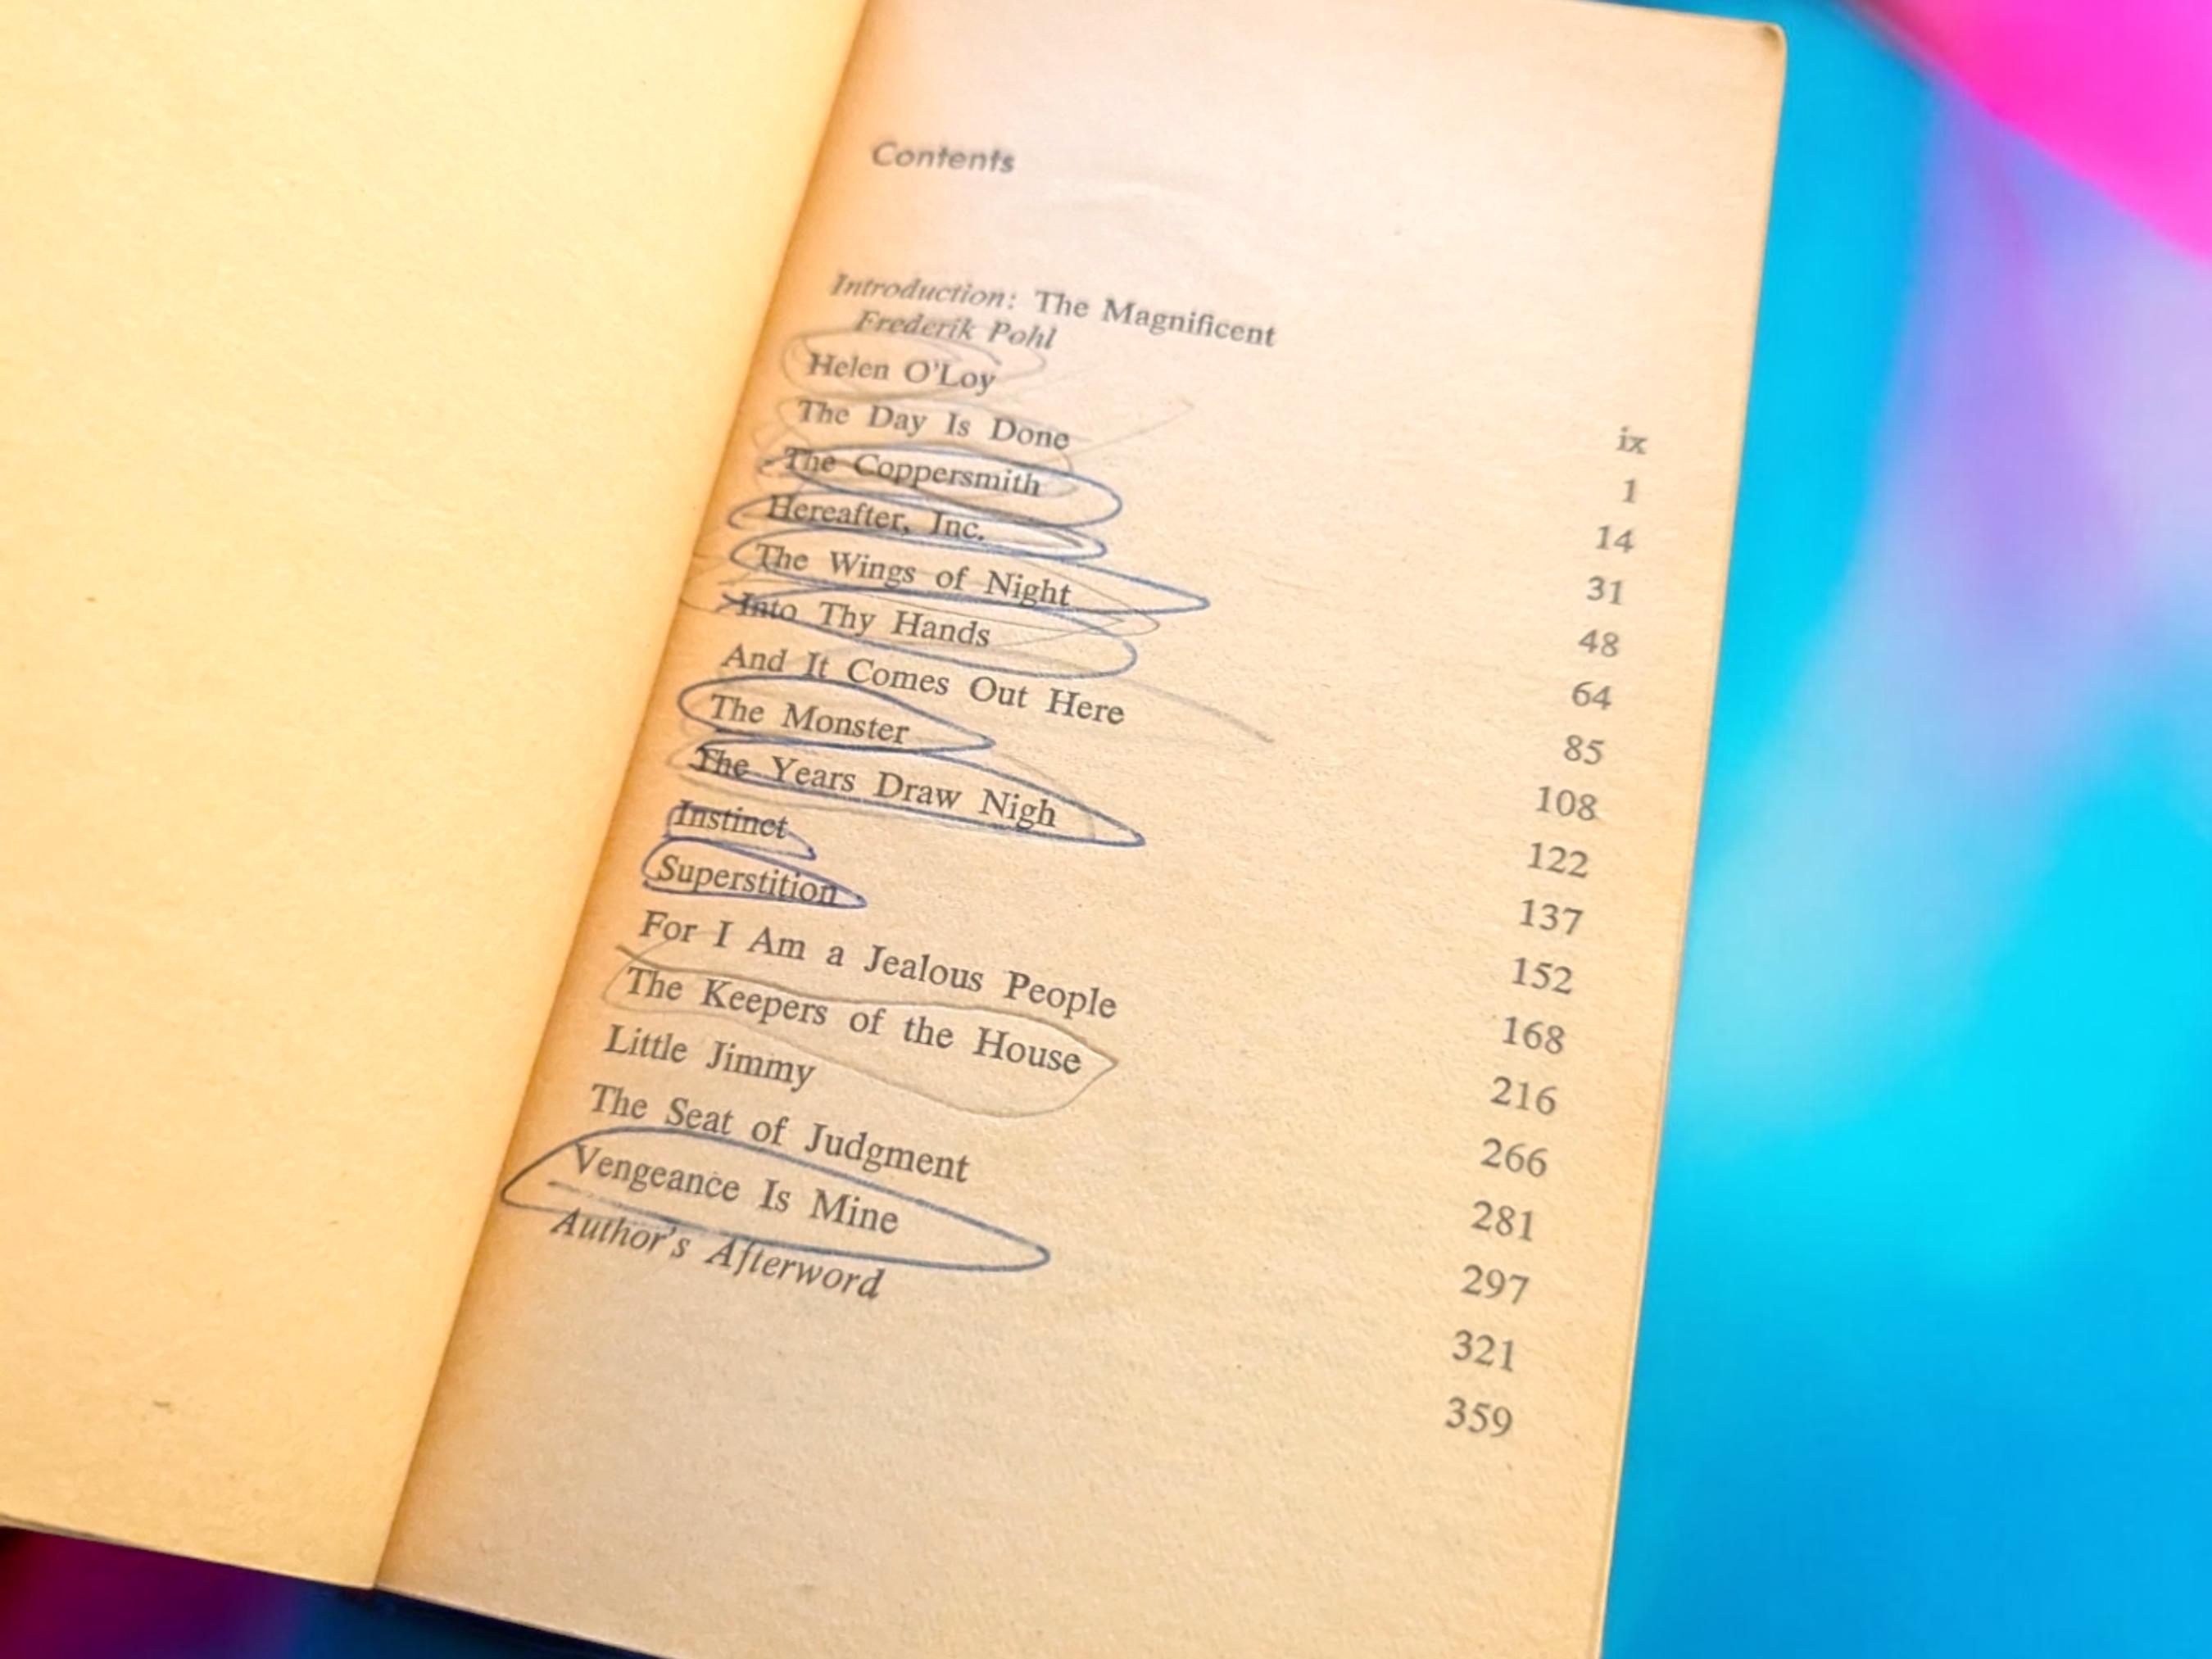 Contents
Introduction: The Magnificent
Frederik Pohl ix
Helen O'Loy 1
The Day Is Done 14
The Coppersmith 31
Hereafter, Inc. 48
The Wings of Night 64
Into Thy Hands 85
And It Comes Out Here 108
The Monster 122
The Years Draw Nigh 137
Instinct 152
Superstition 168
For I Am a Jealous People 216
The Keepers of the House 266
Little Jimmy 281
The Seat of Judgment 297
Vengeance Is Mine 321
Author's Afterword 359